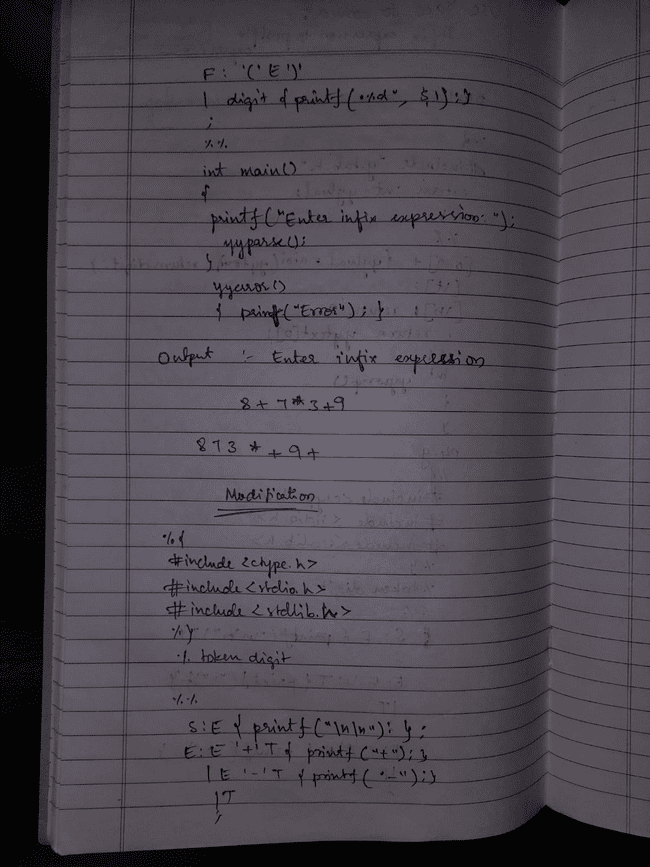 F : '(' E ')'
| digit { printf ("%d", $1); }
;
%%
int main()
{
printf ("Enter infix expression: ");
yyparse();
}
yyerror()
{ printf("Error"); }
Output :- Enter infix expression
8 + 7 * 3 + 9
8 7 3 * + 9 +
Modification
%{
#include <ctype.h>
#include <stdio.h>
#include <stdlib.h>
%}
% token digit
%%
S : E { printf ("\n\n"); } ;
E : E '+' T { printf ("+"); }
| E '-' T { printf ("-"); }
| T
;